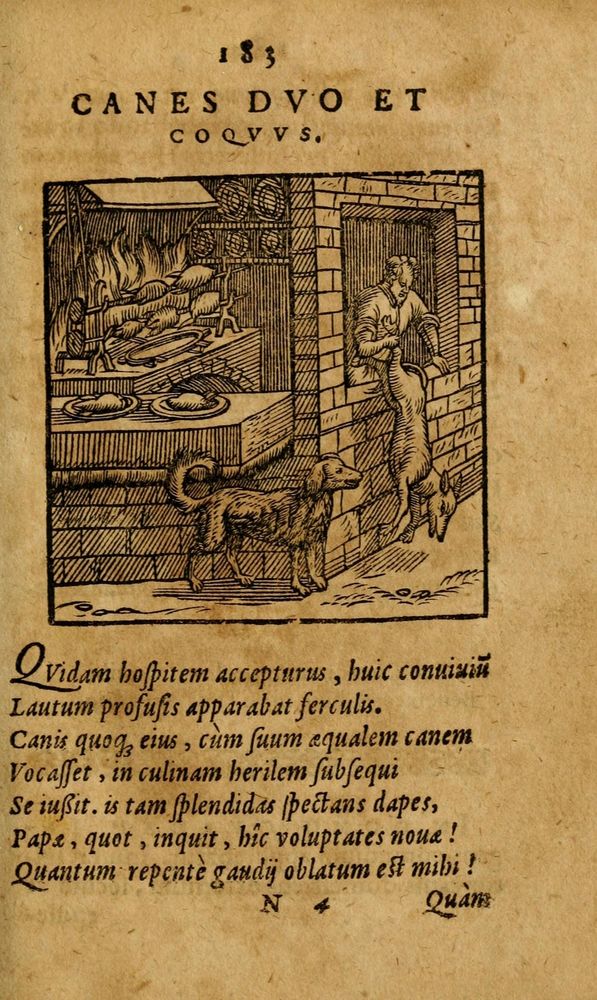 183
CANES DVO ET
COQVVS.
QVidam hoſpitem accepturus, huic conuiuiũ
Lautum profuſis apparabat ferculis.
Canis quoqꝫ eius, cùm ſuum æqualem canem
Vocaſſet, in culinam herilem ſubſequi
Se iußit. is tam ſplendidas ſpectans dapes,
Papæ, quot, inquit, hîc voluptates nouæ!
Quantum repentè gaudij oblatum est mihi!
N 4 Quàm